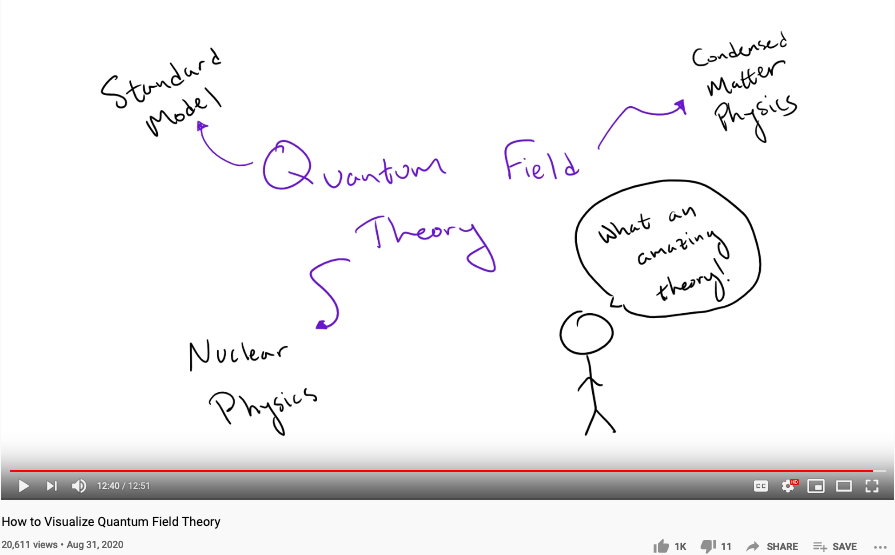 Standard
Model
Condensed
Matter
Physics
Quantum Field
Theory
What an
amazing
theory!
Nuclear
Physics
12:40 / 12:51
CC
HD
How to Visualize Quantum Field Theory
20,611 views • Aug 31, 2020
1K
11
SHARE
SAVE